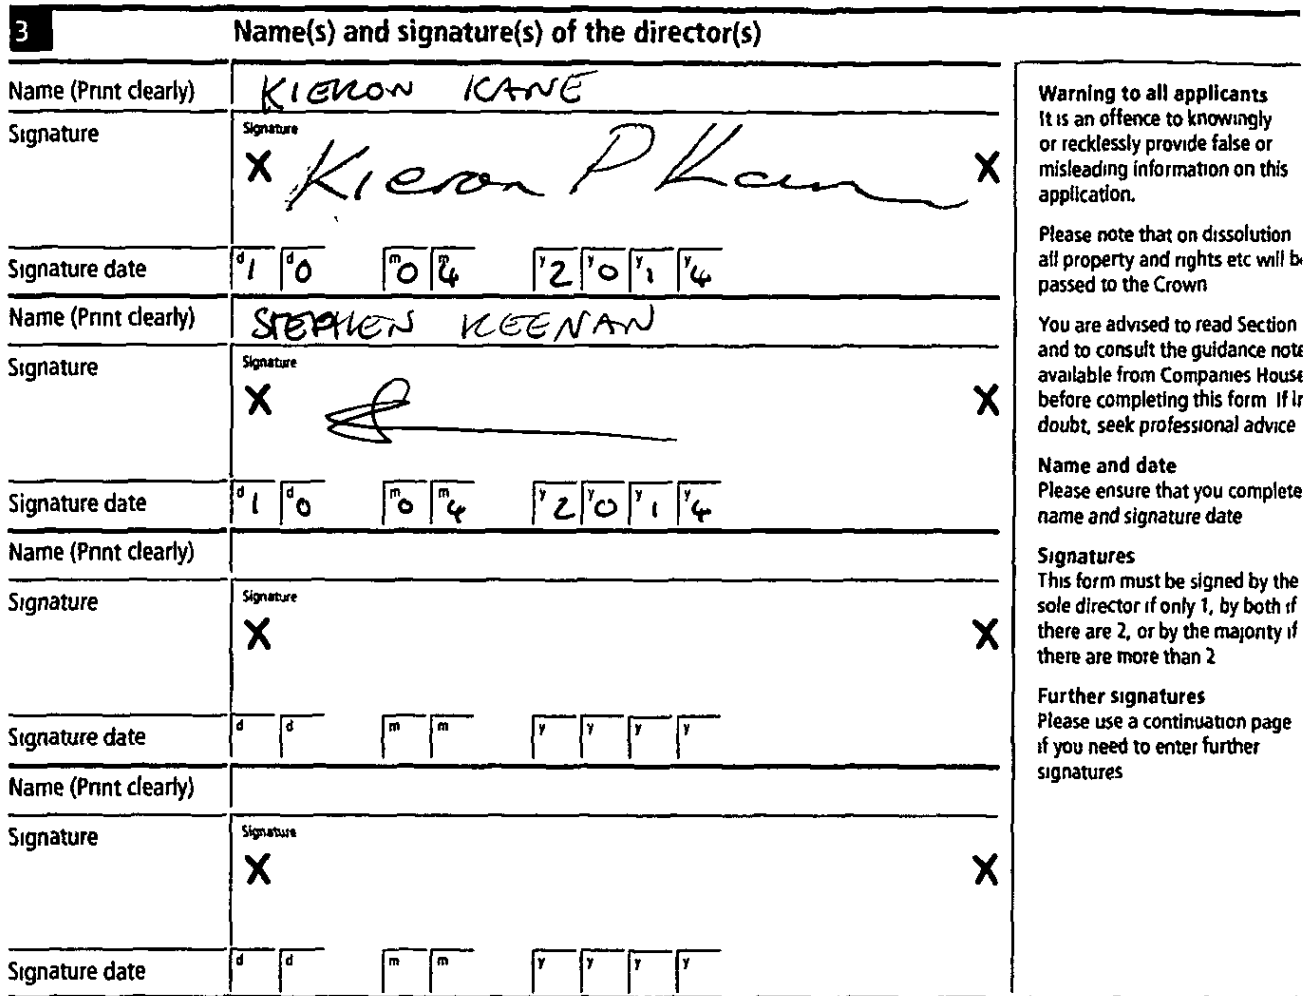 3 Name(s) and signature(s) of the director(s)
Name (Print clearly) KIERON KANE
Signature Signature
X Kieron P Kane X
Signature date d1 d0 m0 m4 y2 y0 y1 y4
Name (Print clearly) STEPHEN KEENAN
Signature Signature
X X
Signature date d1 d0 m0 m4 y2 y0 y1 y4
Name (Print clearly)
Signature Signature
X X
Signature date d d m m y y y y
Name (Print clearly)
Signature Signature
X X
Signature date d d m m y y y y
Warning to all applicants
It is an offence to knowingly
or recklessly provide false or
misleading information on this
application.
Please note that on dissolution
all property and rights etc will b
passed to the Crown
You are advised to read Section
and to consult the guidance note
available from Companies House
before completing this form If in
doubt, seek professional advice
Name and date
Please ensure that you complete
name and signature date
Signatures
This form must be signed by the
sole director if only 1, by both if
there are 2, or by the majority if
there are more than 2
Further signatures
Please use a continuation page
if you need to enter further
signatures